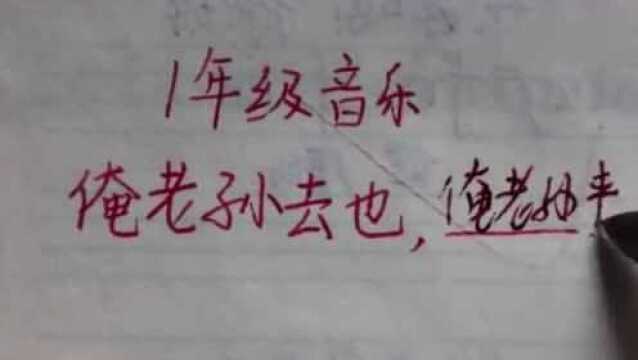 1年级音乐
俺老孙去也,俺老孙来